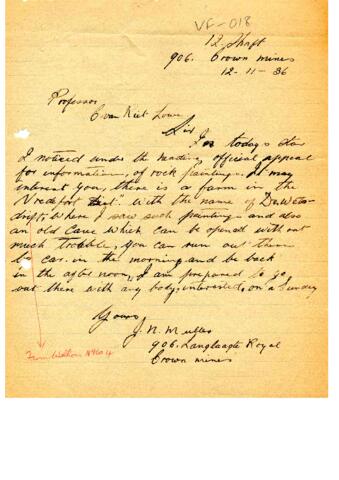 VF-018
12 Shaft
906. Crown mines
12-11-36
Professor
C van Riet Lowe
Sir
In todays Star
I noticed under the heading official appeal
for information, of rock paintings. It may
interest you, there is a farm in the
Vredefort with the name of
drift, where I saw such painting and also
an old Cave which can be opened without
much trouble, you can run out there
by car. in the morning, and be back
in the after noon, I am prepared to go
out there with any body, interested, on a Sunday
Yours
J. N. Muller
906. Langlaagte Royal
Crown mines